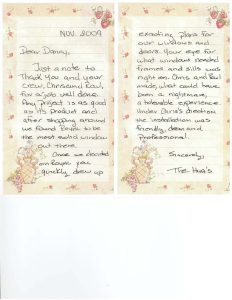 Nov. 2009
Dear Danny,
Just a note to
Thank you and your
crew, Chris and Paul,
for a job well done.
Any project is as good
as its product and
after shopping around
we found to be
the most solid window
out there.
Once we decided
on you
quickly drew up
exacting plans for
our windows and
doors. Your eye for
what windows needed
frames and sills was
right on. Chris and Paul
made, what could have
been a nightmare,
a tolerable experience.
Under Chris's direction
the installation was
friendly, clean and
Professional.
Sincerely,
- The